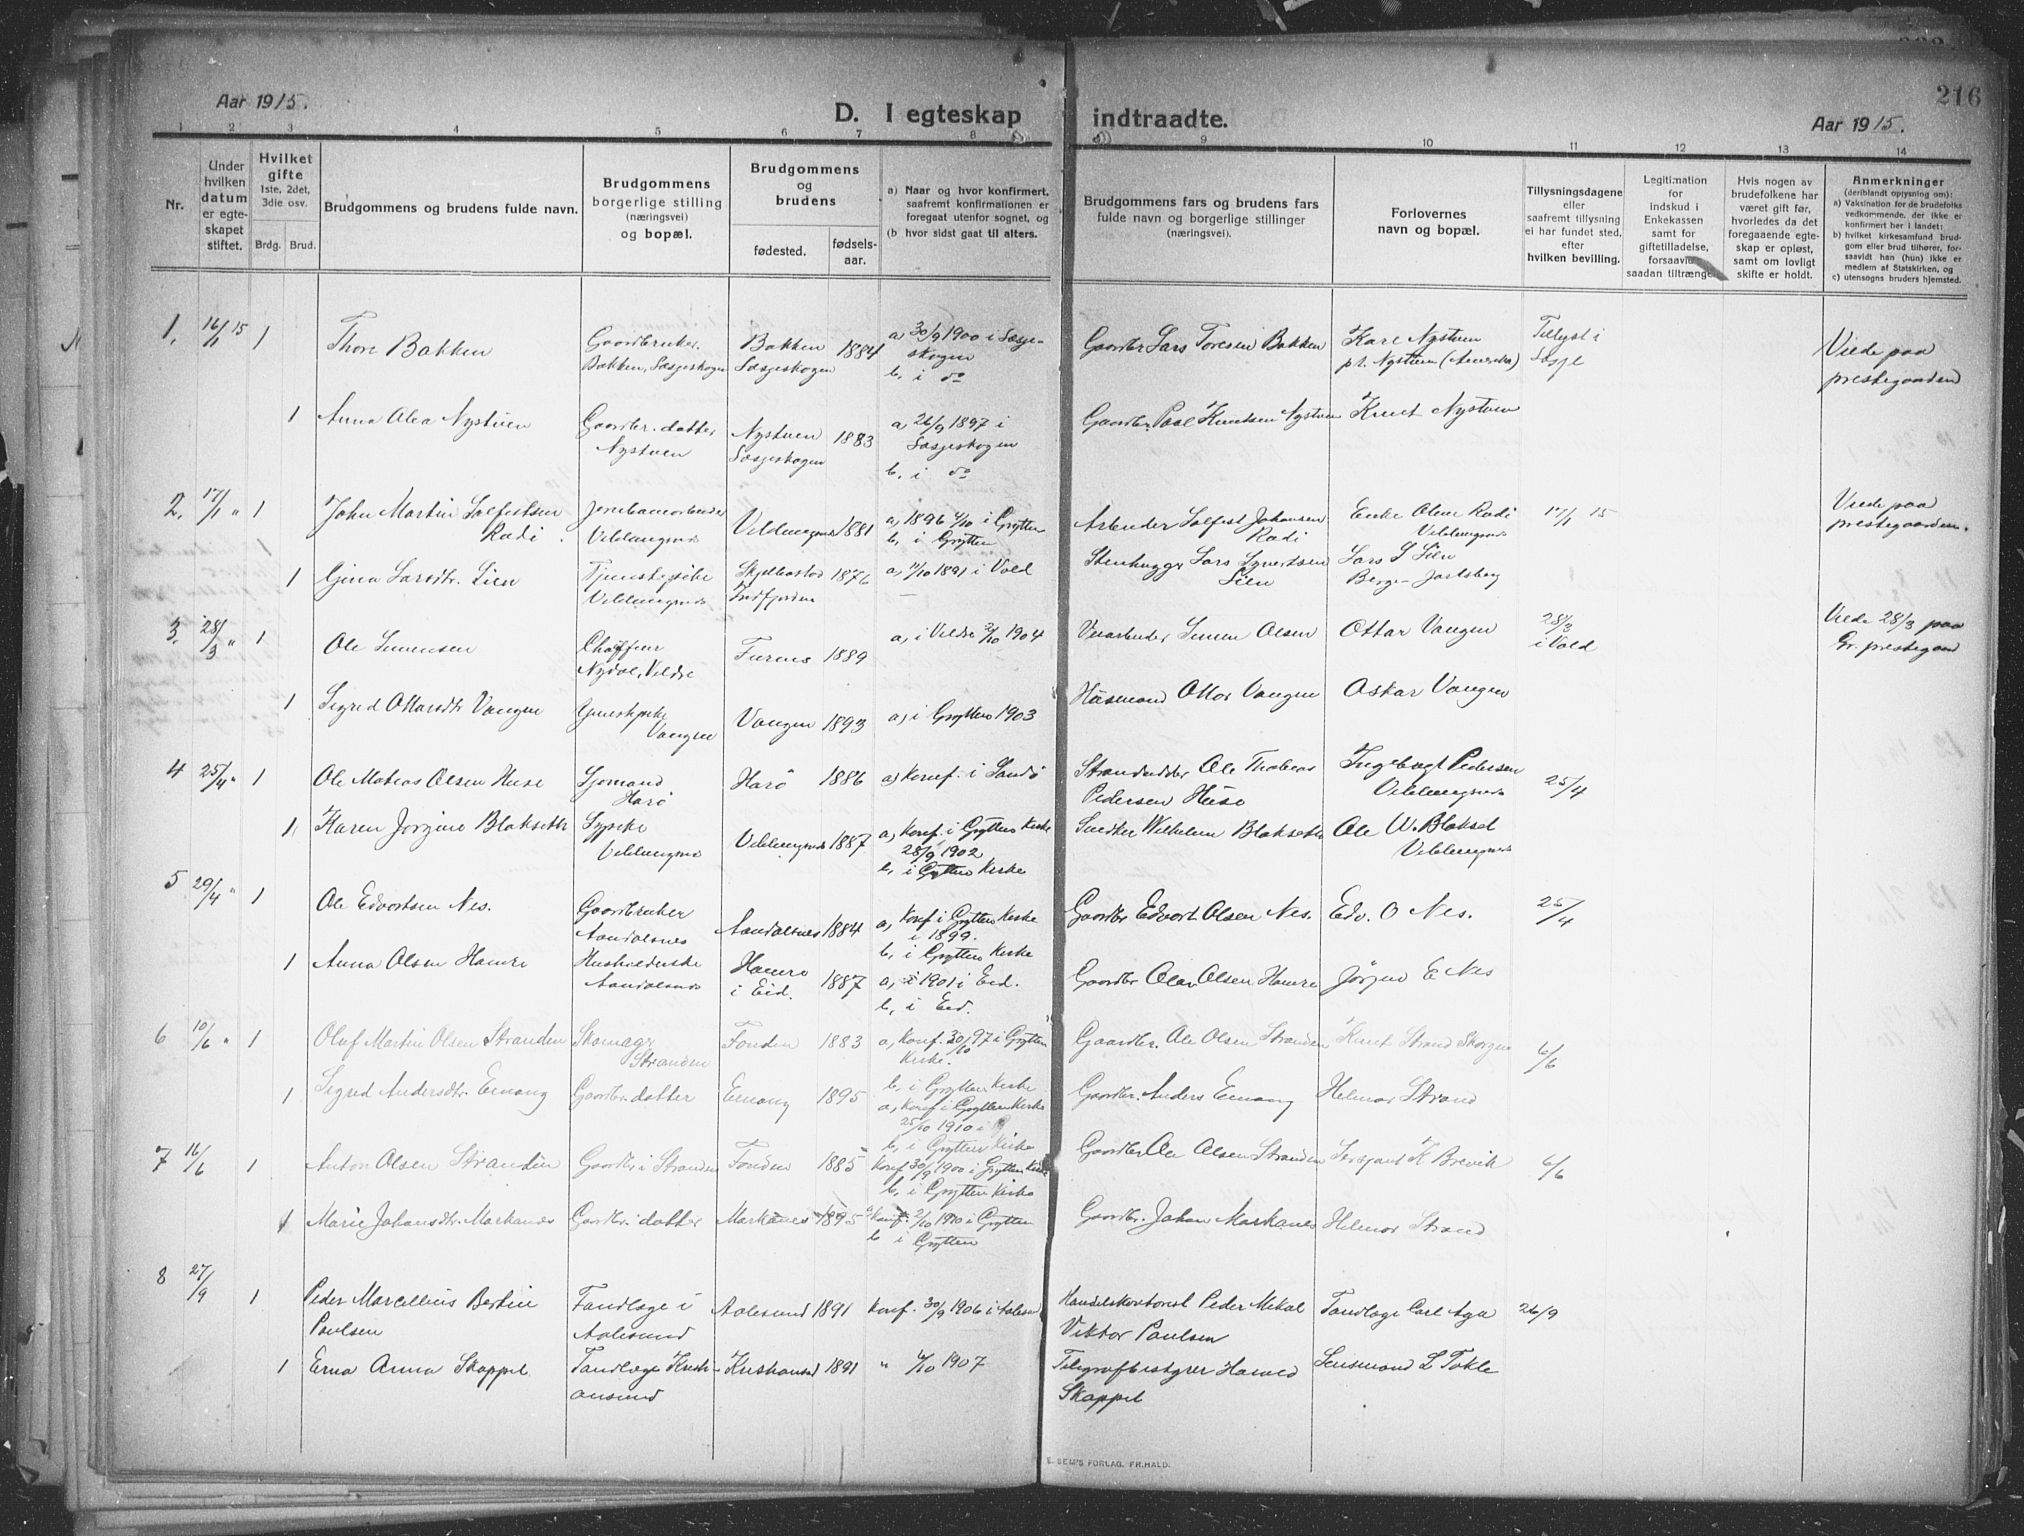 216
Aar 1915.
D. I egteskap
indtraadte.
Aar 1915.
1 2 3 4 5 6 7 8 9 10 11 12 13 14
Nr.
Under hvilken datum er egteskapet stiftet.
Hvilket gifte
1ste, 2det, 3die osv.
Brdg. Brud.
Brudgommens og brudens fulde navn.
Brudgommens borgerlige stilling (næringsvei) og bopæl.
Brudgommens og brudens
fødested.
fødselsaar.
a) Naar og hvor konfirmert, saafremt konfirmationen er foregaat utenfor sognet, og
(b hvor sidst gaat til alters.
Brudgommens fars og brudens fars fulde navn og borgerlige stillinger (næringsvei).
Forlovernes navn og bopæl.
Tillysningsdagene eller saafremt tillysning ei har fundet sted, efter hvilken bevilling.
Legitimation for indskud i Enkekassen samt for giftetilladelse, forsaavidt saadan tiltrænges.
Hvis nogen av brudefolkene har været gift før, hvorledes da det foregaaende egteskap er opløst, samt om lovligt skifte er holdt.
Anmerkninger
(deriblandt oplysning om):
a) Vaksination for de brudefolks vedkommende, der ikke er konfirmert her i landet;
b) hvilket kirkesamfund brudgom eller brud tilhører, forsaavidt han (hun) ikke er medlem af Statskirken, og
c) utensogns bruders hjemsted.
1. 16/1 15 1 Thore Bakken Gaardbruker. Bakken 1884 a, 30/9 1900 i Læsje- Gaardbr. Lars Toresen Bakken Kare Nystuen Tillyst i Viede paa
Bakken, Læsjeskogen Læsjeskogen skogen pt. Nystuen (Amerika) Læsje prestegaarden
b, i do
1 Anna Olea Nystuen Gaardbr. datter Nystuen 1883 a, 26/9 1897 i Gaardbr. Paal Knutsen Nystuen Knut Nystuen
Nystuen Læsjeskogen Læsjeskogen
b, i do
2. 17/1 " 1 John Martin Solfestsen Jernbanearbeider Veblungsnes 1881 a, 1896 4/10 i Grytten Arbeider Solfest Johansen Enke Oline Rødi 17/1 15 Viede paa
Rødi. Veblungsnes b, i Grytten Rødi Veblungsnes prestegaarden.
1 Gina Larsdtr. Lien Tjenestepike Skjelbostad 1876 a, 11/10 1891 i Vold Stenhugger Lars Syvertsen Lars S Lien
Veblungsnes Indfjorden Lien Berge - Jarlsberg
3. 28/3 " 1 Ole Simensen Chaffeur Furnes 1889 a, i Veldre 2/10 1904 Veiarbeider Simen Olsen Ottar Vangen 28/3 Viede 28/3 paa
Nydal, Veldre i Vold Gr. prestegaard
1 Sigrid Ottarsdtr Vangen Tjenestepike Vangen 1893 a, i Grytten 1903 Husmand Ottar Vangen Oskar Vangen
Vangen
4 25/4 " 1 Ole Matias Olsen Huse Sjømand Harø 1886 a, Konf. i Sandø Strandsidder Ole Thobias Ingeborgt Pedersen 25/4
Harø Pedersen Huse Veblungsnes
1 Karen Jørgine Blakseth Sypike Veblungsnes 1887 a, Konf. i Grytten Kirke Snedker Wilhelm Blakseth Ole W. Blakset
Veblungsnes 28/9 1902 Veblungsnes
b, i Grytten Kirke
5 29/4 " 1 Ole Edvartsen Nes. Gaardbruker Aandalsnes 1884 a, Konf. i Grytten Kirke Gaardbr Edvart Olsen Nes. Edv. O Nes. 25/4
Aandalsnes i 1899.
b, i Grytten Kirke
1 Anna Olsen Hamre Husholderske Hamre 1887 a, i 1901 i Eid. Gaardbr Olav Olsen Hamre Jørgen E Nes
Aandalsnes i Eid. b, i Eid.
6 10/6 " 1 Oluf Martin Olsen Stranden Skomager Fonden 1883 a, Konf. 30/10 97 i Grytten Gaardbr. Ole Olsen Stranden Knut Strand Skorgen 6/6
Stranden Kirke.
b, i Grytten Kirke
1 Sigrid Andersdtr. Ermang Gaardbr. datter Ermang 1895 a, Konf. i Grytten Kirke Gaardbr. Anders Ermang Helmer Strand
25/10 1910 i
b, i Grytten Kirke
7 16/6 1 Anton Olsen Stranden Gaardbr. i Stranden Fonden 1885 Konf 30/9 1900 i Grytten Kirke Gaardbr Ole Olsen Stranden Sersjant K Brevik 6/6
b, i Grytten Kirke
1 Marie Johansdtr. Markanes Gaardbr. datter Markanes 1895 a Konf. 2/10 1910 i Grytten Gaardbr. Johan Markanes Helmer Strand
b i Grytten
8 27/9 1 Peder Marcellius Bertin Tandlæge i Aalesund 1891 Konf. 30/9 1906 i Aalesund Handelskontorist Peder Mikal Tandlæge Carl Aga 26/9
Paulsen Aalesund Viktor Paulsen
1 Erna Anna Skappel Tandlæge Kristi- Kristiansund 1891 " 6/10 1907 Telegrafbestyrer Harald Lensmand L Tokle
ansund Skappel
E. SEM'S FORLAG. FR.HALD.